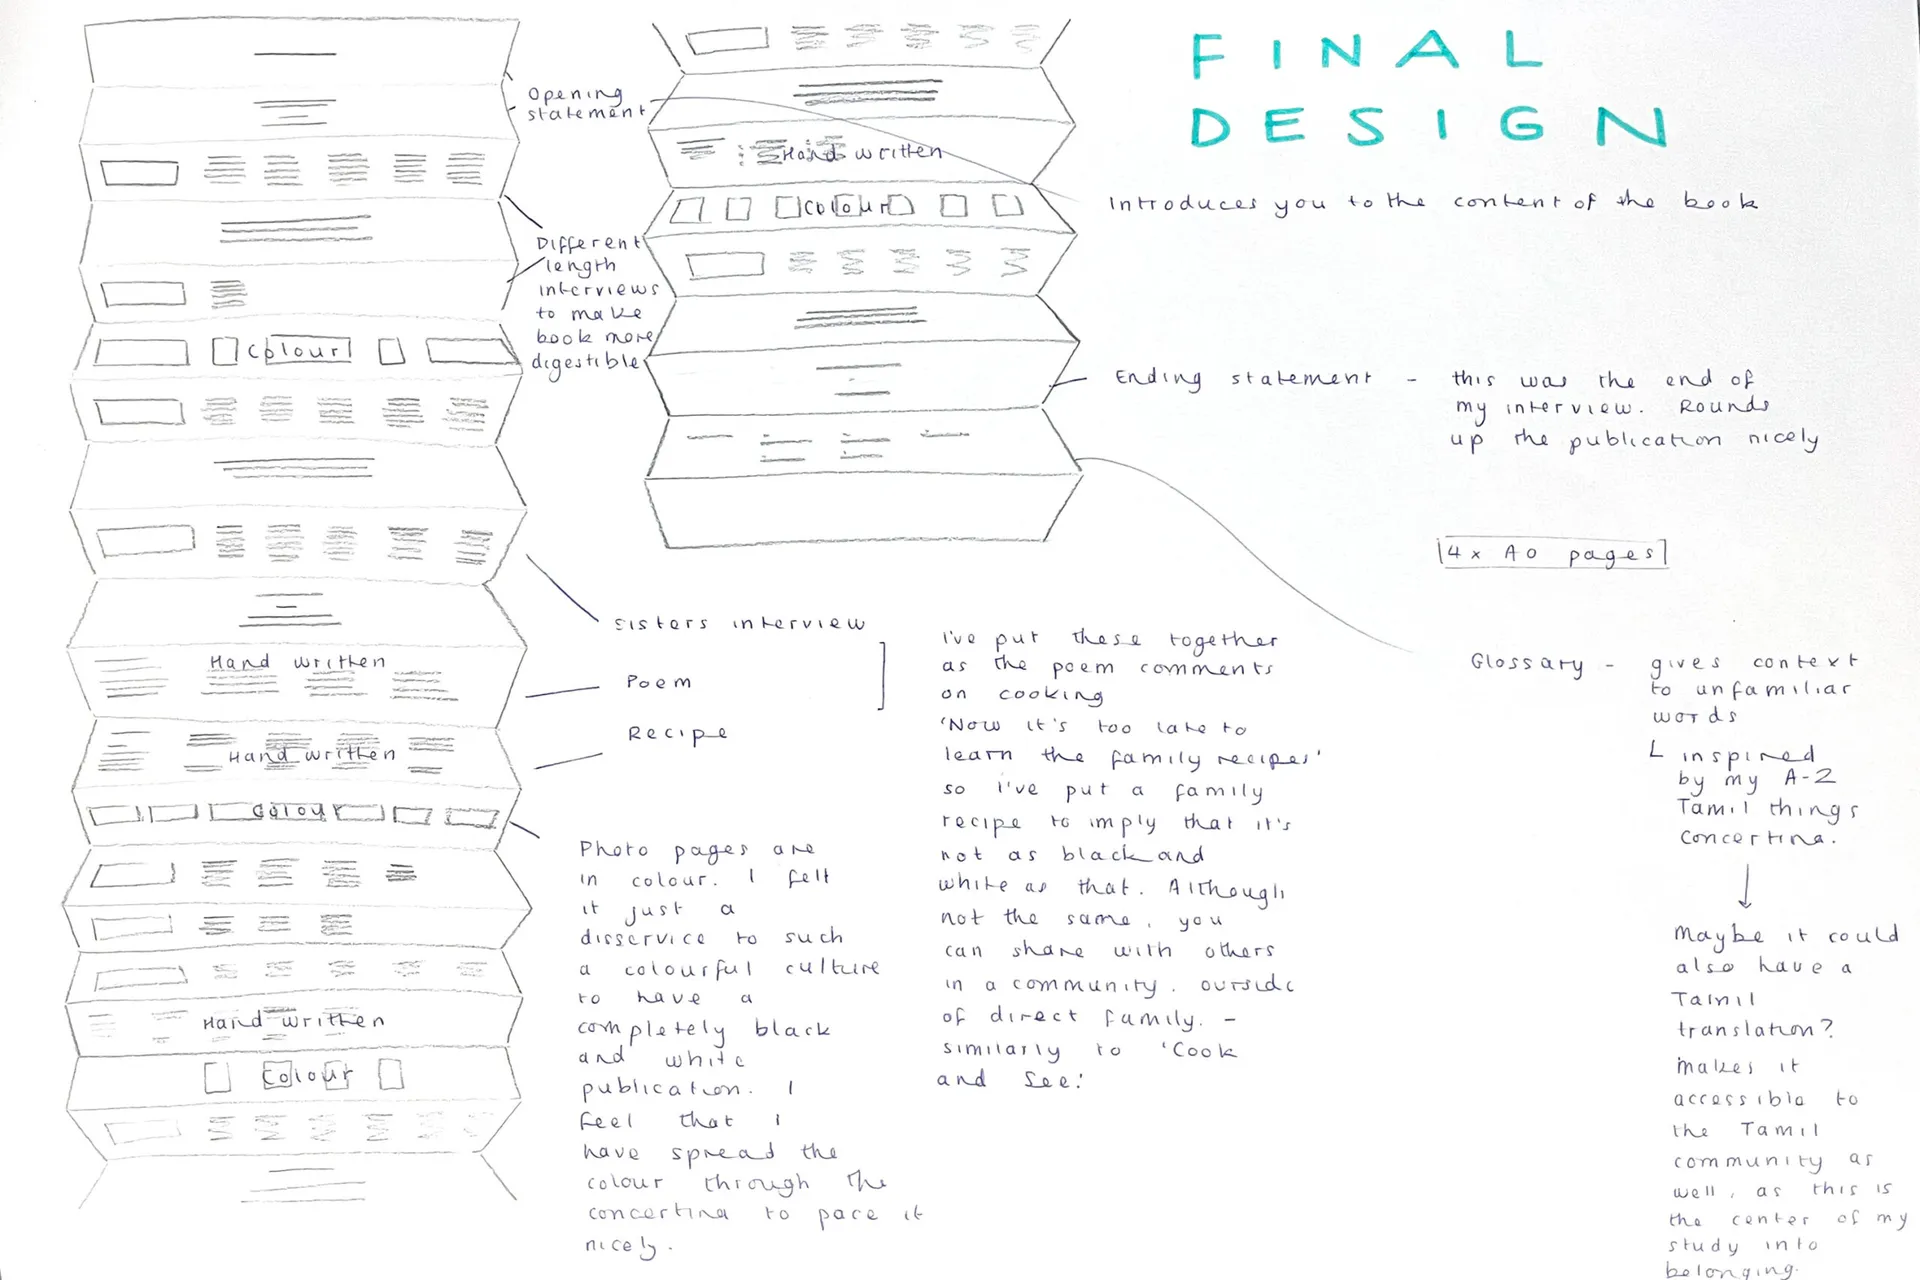 FINAL
DESIGN
Opening
statement
Introduces you to the content of the book
Different
length
interviews
to make
book more
digestible
Colour
Hand written
Colour
Ending statement - this was the end of
my interview. Rounds
up the publication nicely
4 x A0 pages
Sisters interview
Poem
Recipe
Hand written
Hand written
Colour
Hand written
Colour
I've put these together
as the poem comments
on cooking
'Now it's too late to
learn the family recipes'
so I've put a family
recipe to imply that it's
not as black and
white as that. Although
not the same, you
can share with others
in a community. outside
of direct family. -
similarly to 'Cook
and See.'
Photo pages are
in colour. I felt
it just a
disservice to such
a colourful culture
to have a
completely black
and white
publication. I
feel that I
have spread the
colour through the
concertina to pace it
nicely.
Glossary - gives context
to unfamiliar
words
L inspired
by my A-Z
Tamil things
concertina.
↓
Maybe it could
also have a
Tamil
translation?
Makes it
accessible to
the Tamil
community as
well, as this is
the center of my
study into
belonging.